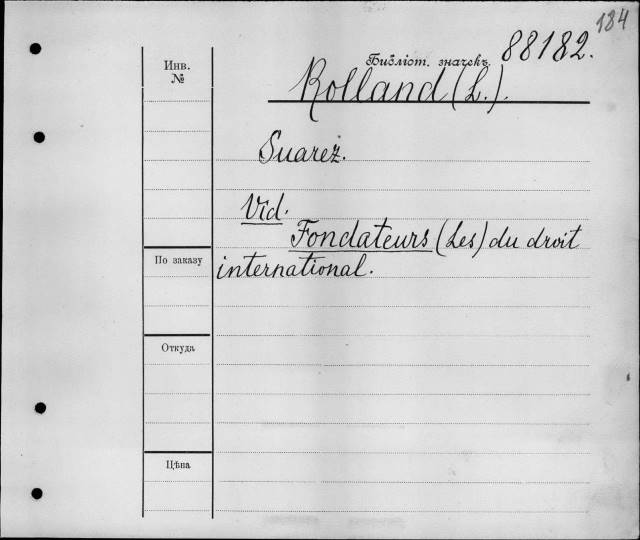 184
Инв.
№
Библіот. значекъ 88182.
Rolland (L.).
Suarez.
Vid.
Fondateurs (Les) du droit
По заказу
international.
Откуда
Цѣна